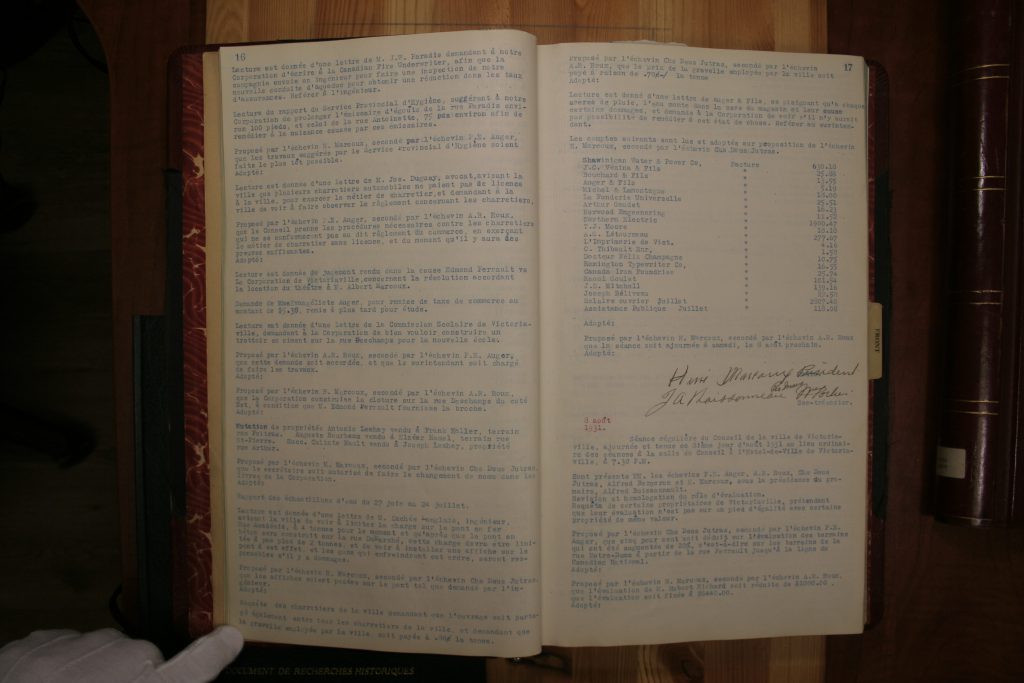 16
Lecture est donnée d'une lettre de M. J.W. Paradis demandant à notre
Corporation d'écrire à la Canadian Fire Underwriter, afin que la
compagnie envoie un ingénieur pour faire une inspection de notre
nouvelle conduite d'aqueduc pour obtenir une réduction dans les taux
d'assurances. Référer à l'ingénieur.
Lecture du rapport du Service Provincial d'Hygiène, suggérant à notre
Corporation de prolonger l'émissaire d'égouts de la rue Paradis envi-
ron 100 pieds, et celui de la rue Antoinette, 75 pds environ afin de
remédier à la nuisance causée par ces émissaires.
Proposé par l'échevin H. Marcoux, secondé par l'échevin P.E. Auger,
que les travaux suggérés par le Service Provincial d'Hygiène soient
faits le plus tôt possible.
Adopté:
Lecture est donnée d'une lettre de M. Jos. Duguay, avocat, avisant la
ville que plusieurs charretiers automobiles ne paient pas de licence
à la ville, pour exercer le métier de charretier, et demandant à la
ville de voir à faire observer le règlement concernant les charretiers,
Proposé par l'échevin P.E. Auger, secondé par l'échevin A.R. Roux,
que le Conseil prenne les procédures nécessaires contre les charretiers
qui ne se conformeront pas au dit règlement du commerce, en exerçant
le métier de charretier sans licence, et du moment qu'il y aura des
preuves suffisantes.
Adopté:
Lecture est donnée du jugement rendu dans la cause Edmond Perrault vs
La Corporation de Victoriaville, concernant la résolution accordant
la location du théâtre à M. Albert Marcoux.
Demande de Mme Evangéliste Auger, pour remise de taxe de commerce au
montant de $5.38, remis à plus tard pour étude.
Lecture est donnée d'une lettre de la Commission Scolaire de Victoria-
ville, demandant à la Corporation de bien vouloir construire un
trottoir en ciment sur la rue Deschamps pour la nouvelle école.
Proposé par l'échevin A.R. Roux, secondé par l'échevin P.E. Auger,
que cette demande soit accordée, et que le surintendant soit chargé
de faire les travaux.
Adopté:
Proposé par l'échevin H. Marcoux, secondé par l'échevin
que la Corporation construise la clôture sur la rue Deschamps du coté
Est, à condition que M. Edmond Perrault fournisse la broche.
Adopté:
Mutation de propriétés Antonio Leshay vendu à Frank Haller, terrain
rue Poitras. Auguste Bourbeau vendu à Elzéar Hamel, terrain rue
St-Pierre. Succ. Calixte Nault vendu à Joseph Leshay, propriété
rue Arthur.
Proposé par l'échevin H. Marcoux, secondé par l'échevin Chs Dens Jutras,
que le secrétaire soit autorisé de faire le changement de noms dans les
livres de la Corporation.
Adopté:
Rapport des échantillons d'eau du 27 juin au 24 juillet.
Lecture est donnée d'une lettre de M. ingénieur,
avisant la ville de voir à limiter la charge sur le pont en fer
rue à 4 tonnes pour le moment et qu'après que le pont en
béton sera construit sur la rue Demandré, cette charge devra être limi-
tée à pas plus de 2 tonnes, et de voir à installer une affiche sur le
pont à cet effet, et les gens qui enfreindront cet ordre, seront res-
ponsables s'il y a dommages.
Proposé par l'échevin H. Marcoux, secondé par l'échevin Chs Dens Jutras,
que les affiches soient posées sur le pont tel que demandé par l'in-
génieur.
Adopté:
Requête des charretiers de la ville demandant que l'ouvrage soit parta-
gé également entre tous les charretiers de la ville, et demandant que
la gravelle employée par la ville, soit payée à la tonne.
17
Proposé par l'échevin Chs Dens Jutras, secondé par l'échevin
A.R. Roux, que le prix de la gravelle employée par la ville soit
payé à raison de .70¢ la tonne
Adopté:
Lecture est donnée d'une lettre de Auger & Fils, se plaignant qu'à chaque
averse de pluie, l'eau monte dans la cave du magasin et leur cause
certains dommages, et demande à la Corporation de voir s'il n'y aurait
pas possibilité de remédier à cet état de chose. Référer au surinten-
dant.
Les comptes suivants sont lus et adoptés sur proposition de l'échevin
H. Marcoux, secondé par l'échevin Chs Dens Jutras.
Shawinigan Water & Power Co, Facture 630.18
J.C. Vézina & Fils " 25.88
Bouchard & Fils "
Auger & Fils " 5.19
Michel & Lamontagne "
La Fonderie Universelle " 25.51
Arthur Gaudet " 16.21
Norwood Engeenering "
Northern Electric " 1900.47
T.J. Moore " 18.18
A.G. Létourneau " 277.67
L'Imprimerie de Vict. "
C. Thibault Enr. " 1.50
Docteur Félix Champagne " 10.75
Remington Typewriter Co, " 16.55
Canada Iron Foundries " 25.74
Raoul Goulet " 101.94
J.D. Mitchell " 139.16
Joseph Béliveau "
Salaire ouvrier Juillet " 2827.40
Assistance Publique Juillet " 118.08
Adopté:
Proposé par l'échevin H. Marcoux, secondé par l'échevin A.R. Roux
que la séance soit ajournée à samedi, le 8 août prochain.
Adopté:
Henri Marcoux Président
Sec-trésorier.
8 août
1931.
Séance régulière du Conseil de la ville de Victoria-
ville, ajournée et tenue ce 8ième jour d'août 1931 au lieu ordinai-
re des séances à la salle du Conseil à l'Hotel-de-Ville de Victoria-
ville, à 7.30 P.M.
Sont présents MM. les échevins P.E. Auger, A.R. Roux, Chs Dens
Jutras, Alfred Bergeron et H. Marcoux, sous la présidence du pro-
maire, Alfred Boissonnault.
Revision et homologation du rôle d'évaluation.
Requête de certains propriétaires de Victoriaville, prétendant
que leur évaluation n'est pas sur un pied d'égalité avec certains
propriété de même valeur.
Proposé par l'échevin Chs Dens Jutras, secondé par l'échevin P.E.
Auger, que cinq pour cent soit déduit sur l'évaluation des terrains
qui ont été augmentés de 20%, c'est-à-dire sur les terrains de la
rue Notre-Dame à partir de la rue Perrault jusqu'à la ligne du
Canadien National.
Adopté:
Proposé par l'échevin H. Marcoux, secondé par l'échevin A.R. Roux,
que l'évaluation de M. Hubert Richard soit réduite de $1000.00.
que l'évaluation soit fixée à $6440.00.
Adopté:
FRONT
DOCUMENT DE RECHERCHES HISTORIQUES